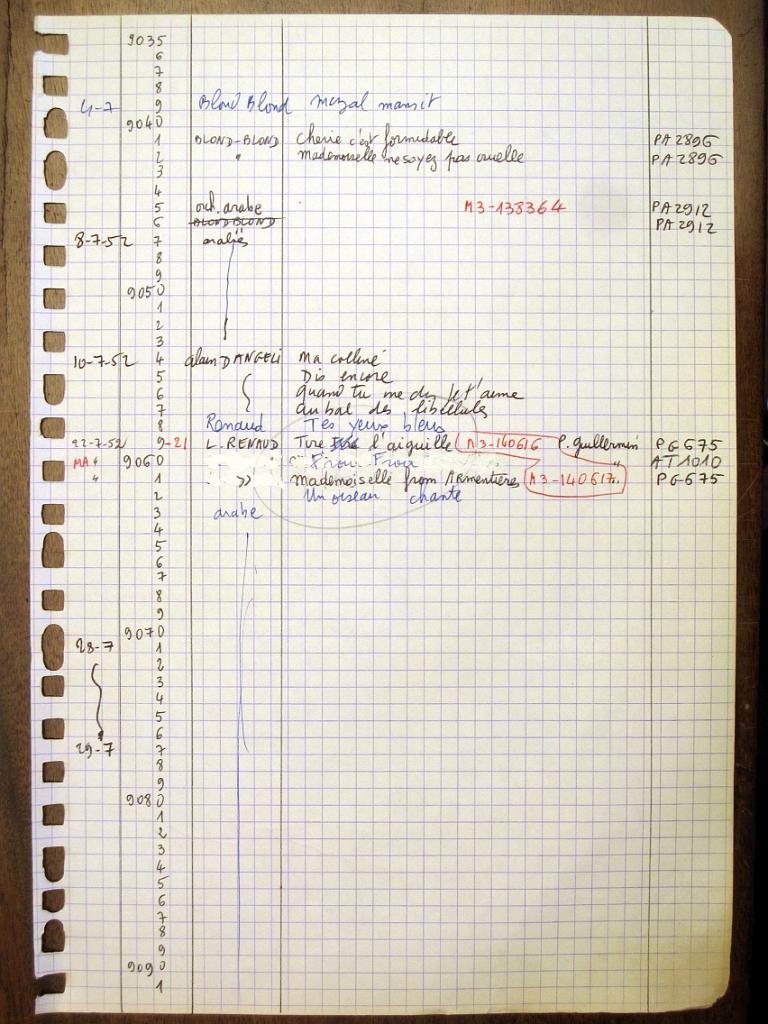 9035
6
7
8
4-7 9 Blond Blond mazal mansit
9040
1 BLOND-BLOND Cherie c'est formidable PA 2896
2 " mademoiselle ne soyez pas cruelle PA 2896
3
4
5 orch. arabe M3-138364 PA 2912
6 BLOND BLOND PA 2912
8-7-52 7 arabes
8
9
9050
1
2
3
10-7-52 4 alain D'ANGELI Ma colline
5 Dis encore
6 Quand tu me dis je t'aime
7 au bal des libellules
8 Renaud Tes yeux bleus
22-7-52 9-21 L. RENAUD Tire l'aiguille M3-140616 P. Guillermin PG 675
MA " 9060 " Frou Frou " AT 1010
" 1 " mademoiselle from ARmentières M3-140617 PG 675
2 Un oiseau chante
3 arabe
4
5
6
7
8
9
9070
28-7 1
2
3
4
5
6
29-7 7
8
9
9080
1
2
3
4
5
6
7
8
9
9090
1